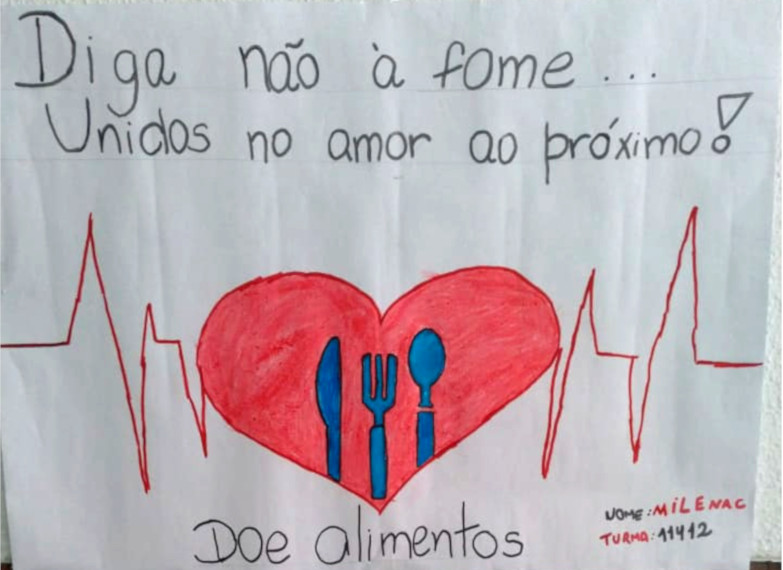 Diga não à fome...
Unidos no amor ao próximo!
Doe alimentos
NOME: MiLENAC
TURMA: 11412